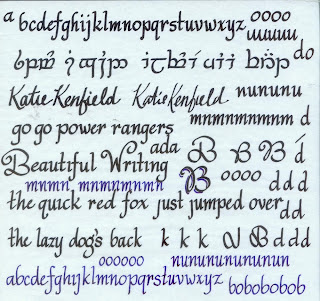 a bcdefghijklmnopqrstuvwxyz oooo
uuuuu
do
Katie Kenfield Katie Kenfield nununu
mnmnmnmnmnm d
go go power rangers
ada B B B d
Beautiful Writing
mnmn mnmnmnmn B oooo d d d
the quick red fox just jumped over dd
the lazy dog's back k k k N B d d d
oooooo nunununununun
abcdefghijklmnopqrstuvwxyz bobobobob